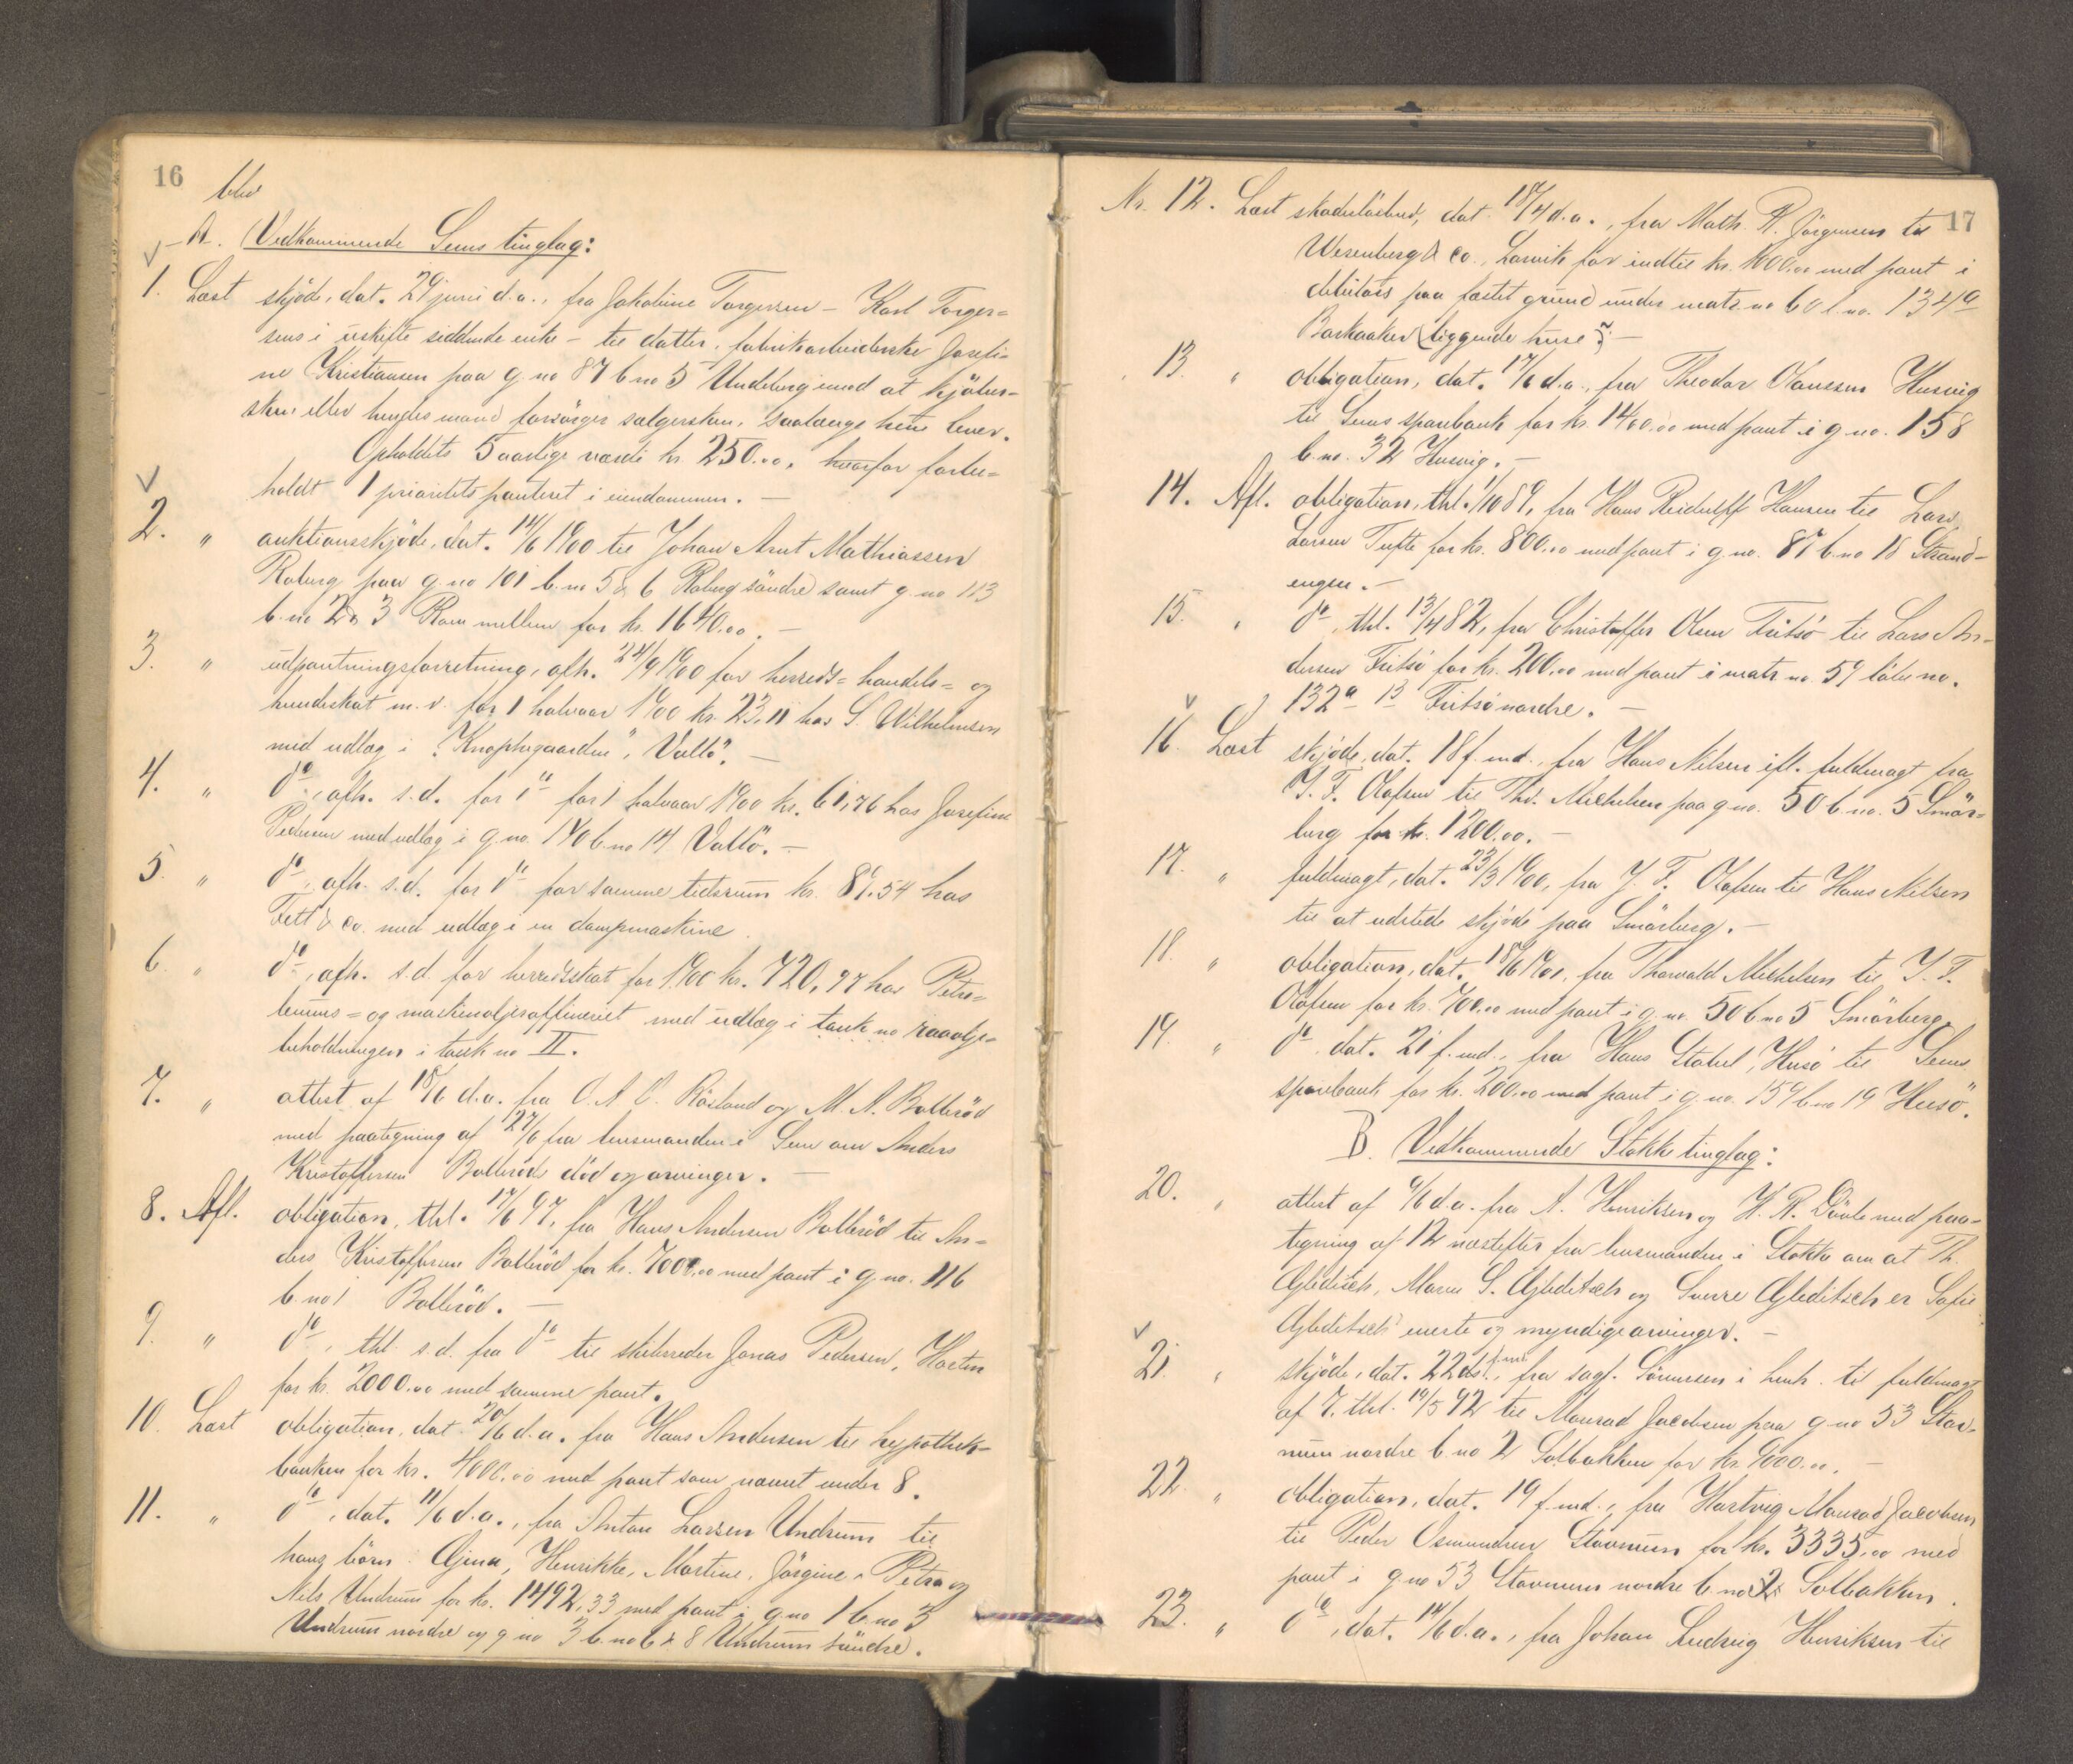 16
blev
A. Vedkommende Sems tinglag:
1. Læst skjøde, dat. 29 juni d.a., fra Jakobine Torgersen – Karl Torger=
sens i uskifte siddende enke – til datter, fabrikarbeiderske Josefi=
ne Kristiansen paa g.no 87 b.no 5 Undeling mod at kjøber=
sken eller hendes mand forsørger sælgersken, saalænge hun lever.
Opholdets 5 aarlige værdi kr. 250.00, hvorfor forbe=
holdt 1 prioritets panteret i eiendommen. –
2. " auktionsskjøde, dat. 14/6 1900 til Johan Arnt Mathiassen
Roberg paa g.no 101 b.no 5 & 6 Roberg søndre samt g.no 113
b.no 2 & 3 Rom mellem for kr. 1640.00. –
3. " udpantningsforretning, afh. 24/9 1900 for herreds= handels= og
hundeskat m.v. for 1 halvaar 1900 kr. 23,11 hos S. Wilhelmsen
med udlæg i "Knophgaarden", Vallø. –
4. " do, afh. s.d. for do for 1 halvaar 1900 kr. 61,76 hos Josefine
Pedersen med udlæg i g.no 140 b.no 14 Vallø. –
5. " do, afh. s.d. for do for samme tidsrum kr. 89.54 hos
Fett & Co. med udlæg i en dampmaskine.
6. " do, afh. s.d. for herredsskat for 1900 kr. 720,97 hos Petro=
leums= og maskinoljeraffineriet med udlæg i tank no raaolje=
beholdningen i tank no II.
7. " attest af 18/6 d.a. fra O. A. O. Røsland og M. A. Bollerød
med paategning af 27/6 fra lensmanden i Sem om Anders
Kristoffersen Bollerøds død og arvinger. –
8. Afl. obligation, thl. 17/6 97, fra Hans Andersen Bollerød til An=
ders Kristoffersen Bollerød for kr. 7000.00 med pant i g.no. 116
b.no 1 Bollerød. –
9. " do, thl. s.d. fra do til skibsreder Jonas Pedersen, Horten
for kr. 2000.00 med samme pant.
10. Læst obligation, dat. 20/6 d.a. fra Hans Andersen til hypothek=
banken for kr. 4000.00 med pant som nævnt under 8.
11. " do, dat. 11/6 d.a., fra Anton Larsen Undrum til
hans børn: Gina, Henrikke, Martine, Jørgine, Petra og
Nils Undrum for kr. 1492,33 med pant i g.no 1 b.no 3
Undrum nordre og g.no 3 b.no 6 & 8 Undrum søndre.
17
Nr. 12. Læst skadesløsbrev, dat. 18/4 d.a., fra Math. R. Jørgensen til
Wesenberg & Co., Larvik for indtil kr. 1000.00 med pant i
debitors paa fæstet grund under matr. no 60 l.no. 134a
Barkaaker liggende huse. –
13. " obligation, dat. 17/6 d.a., fra Theodor Olaussen Husvig
til Sems sparebank for kr. 1400.00 med pant i g.no. 158
b.no. 32 Husvig. –
14. Afl. obligation, thl. 1/10 89, fra Hans Reidulff Hansen til Lars
Larsen Tufte for kr. 800.00 med pant i g.no. 87 b.no 18 Strand=
engen. –
15. " do, thl. 13/4 82, fra Christoffer Olsen Fritsø til Lars An=
dersen Fritsø for kr. 200.00 med pant i matr.no. 59 løbe no.
132a 13 Fritsø nordre. –
16. Læst skjøde, dat. 18 f.md., fra Hans Nilsen ifl. fuldmagt fra
J. F. Olafsen til Thv. Mikkelsen paa g.no. 50 b.no. 5 Smør=
berg for kr. 1200.00. –
17. " fuldmagt, dat. 23/3 1900, fra J. F. Olafsen til Hans Nilsen
til at udstede skjøde paa Smørberg. –
18. " obligation, dat. 18/6 1901, fra Thorvald Mikkelsen til J. F.
Olafsen for kr. 700.00 med pant i g.no. 50 b.no 5 Smørberg.
19. " do, dat. 21 f.md., fra Hans Stabel, Husø til Sems
sparebank for kr. 200.00 med pant i g.no. 159 b.no 19 Husø.
B. Vedkommende Stokke tinglag:
20. " attest af 9/6 d.a. fra A. Henriksen og H. R. Døvle med paa=
tegning af 12 næstefter fra lensmanden i Stokke om at Th.
Gleditsch, Maren S. Gleditsch og Sverre Gleditsch er Sofie
Gleditsch' eneste og myndige arvinger. –
21. " skjøde, dat. 22 ds. f.md., fra sagf. Sørensen i henh. til fuldmagt
af 7. thl. 19/5 92 til Monrad Jacobsen paa g.no 53 Stav=
num nordre b.no 2 Solbakken for kr. 9000.00. –
22. " obligation, dat. 19 f.md., fra Hartvig Monrad Jacobsen
til Peder Osmundsen Stavnum for kr. 3335.00 med
pant i g.no 53 Stavnum nordre b.no 2 Solbakken.
23. " do, dat. 14/6 d.a., fra Johan Ludvig Henriksen til